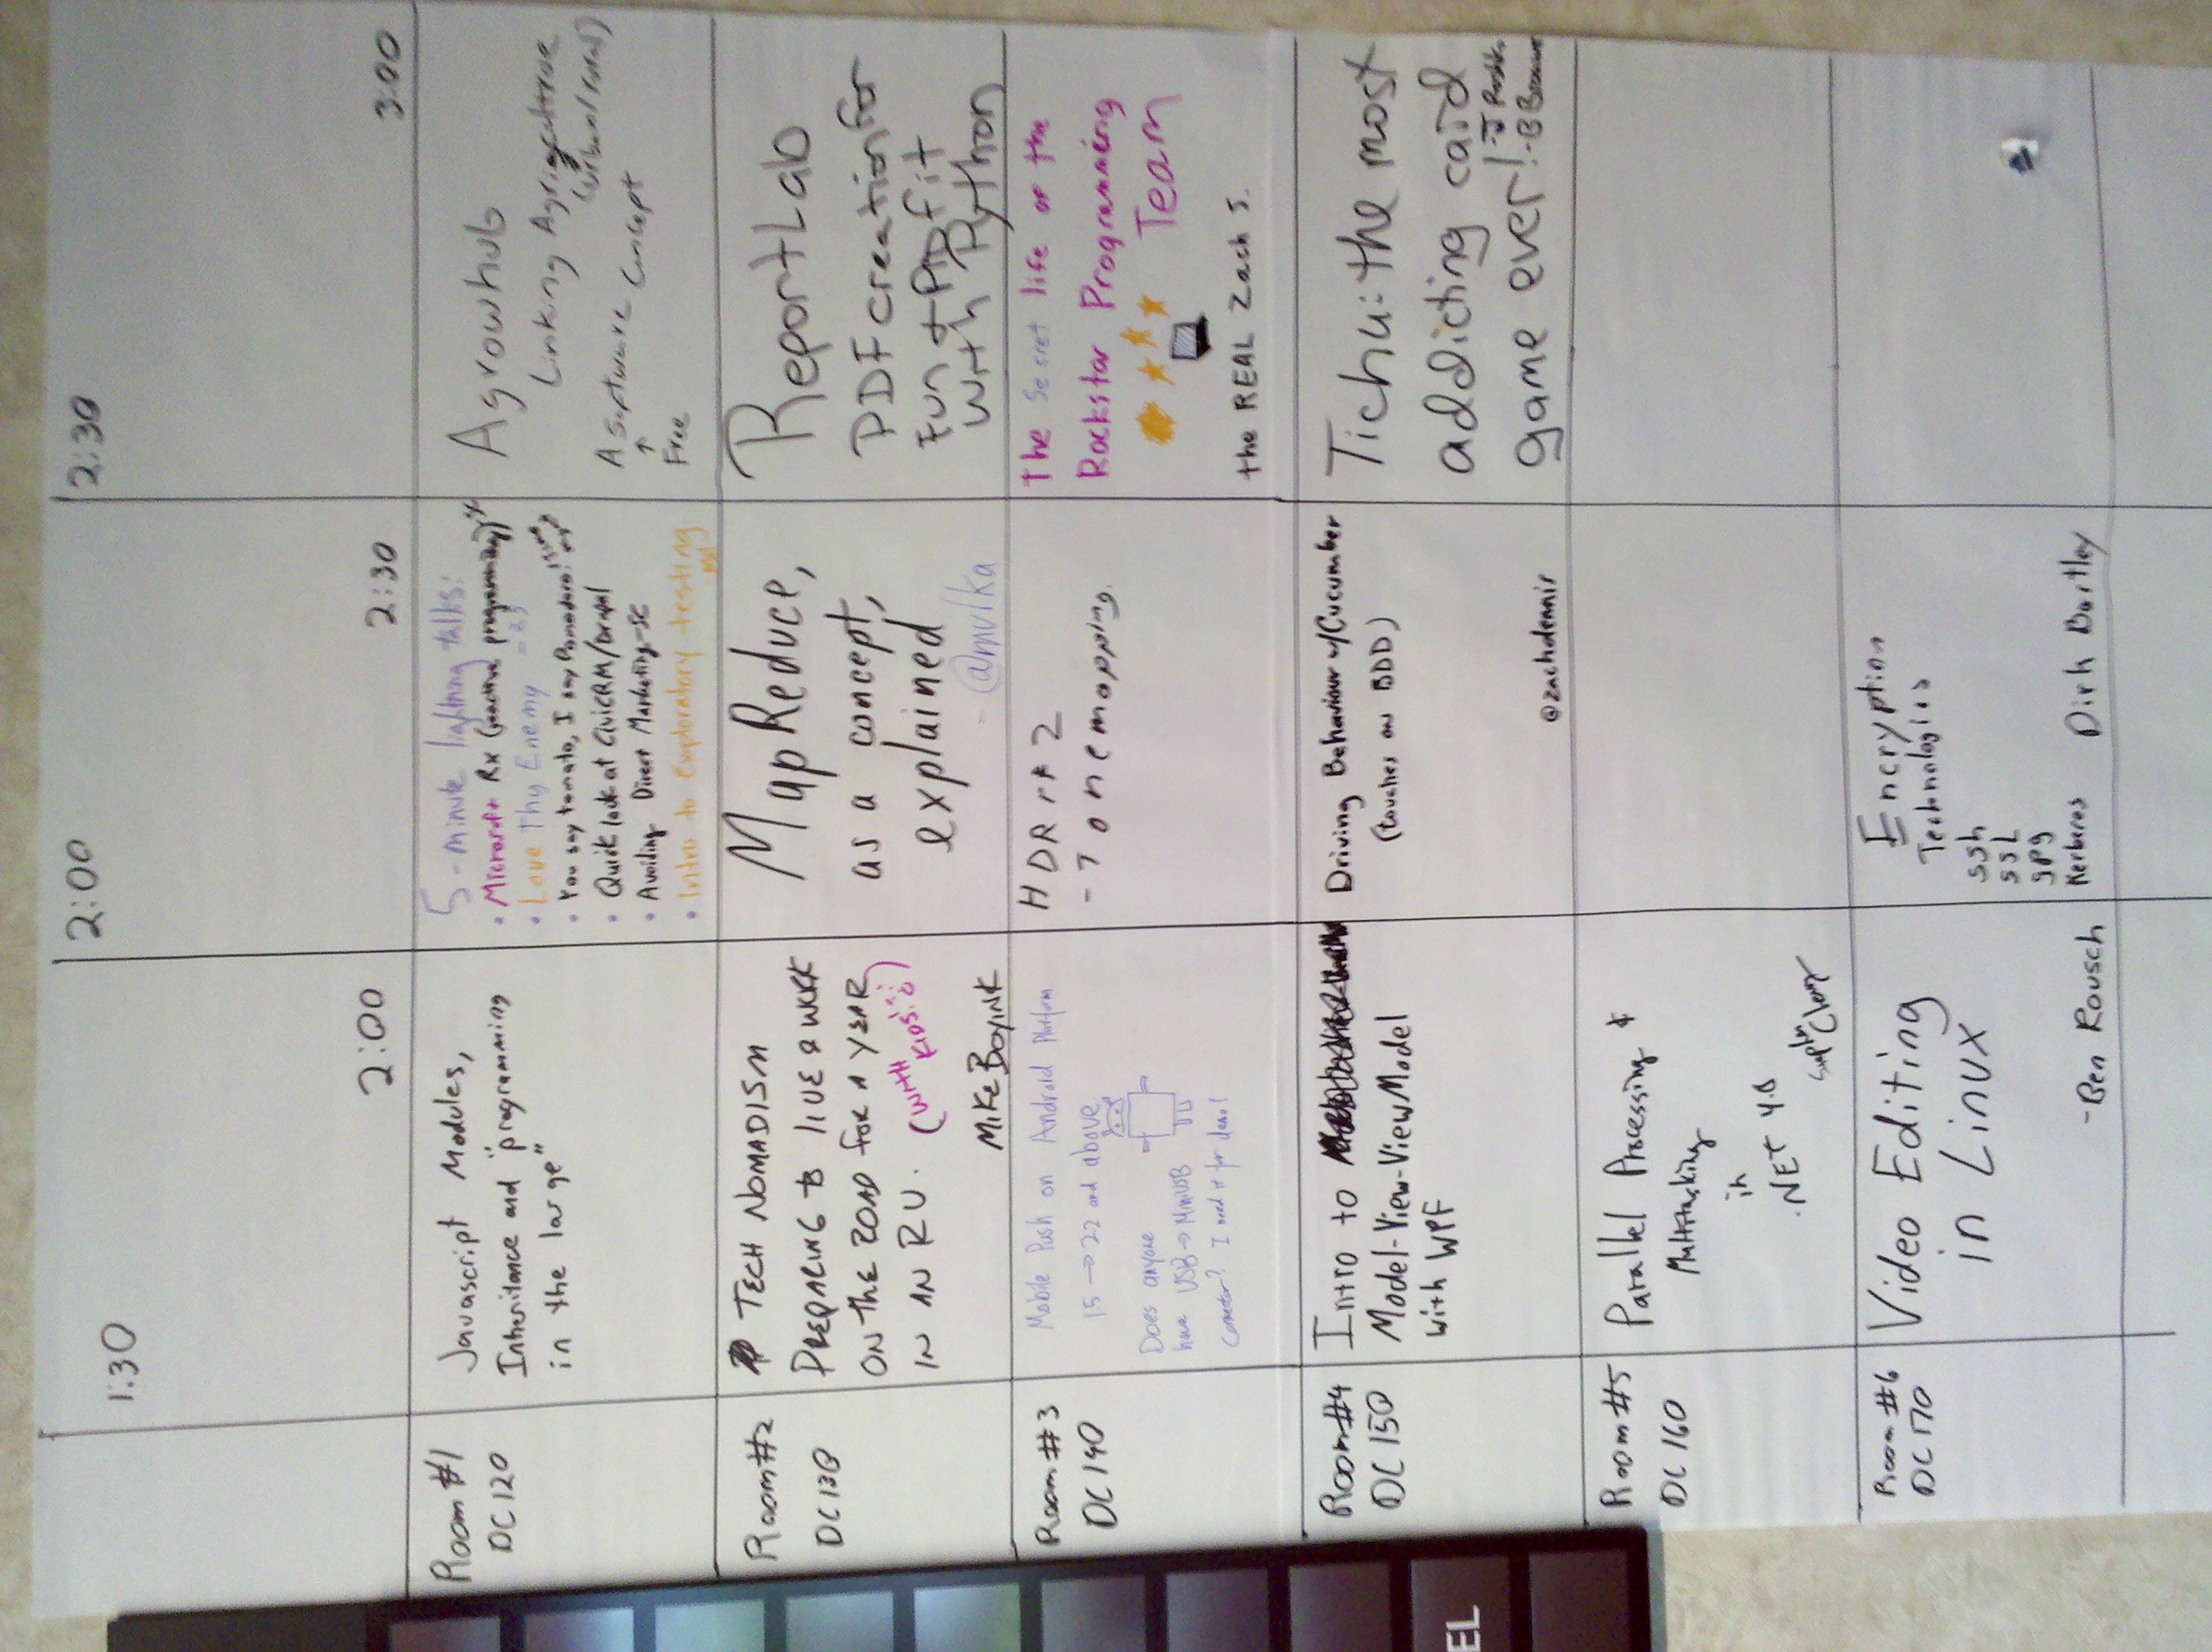 1:30
2:00
2:00
2:30
2:30
3:00
Room #1
DC 120
Javascript Modules,
Inheritance and "programming
in the large"
5-minute lightning talks:
• Microsoft Rx (reactive programming)
• Love Thy Enemy
• You say tomato, I say Pomodoro!
• Quick look at CiviCRM/Drupal
• Avoiding Direct Marketing-SC
• Intro to Exploratory testing
-Mel
Agrowhub
Linking Agriculture
(urban/rural)
A Software Concept
↑
Free
Room #2
DC 130
TECH NOMADISM
PREPARING to LIVE & WORK
ON THE ROAD FOR A YEAR
IN AN RV. (WITH
KIDS!!)
MIKE BOYINK
MapReduce,
as a concept,
explained
- @mulka
ReportLab
PDF creation for
Fun + Profit
with Python
Room #3
DC 140
Mobile Push on Android Platform
1.5 → 2.2 and above
Does anyone
have USB → MiniUSB
connector? I need it for demo!
HDR pt 2
- Tonemapping.
The Secret life of the
Rockstar Programming
Team
the REAL Zach S.
Room #4
DC 150
Intro to
Model-View-ViewModel
with WPF
Driving Behaviour w/Cucumber
(touches on BDD)
@zachdennis
Tichu: the most
addicting card
game ever!
EL
Room #5
DC 160
Parallel Processing &
Multitasking
in
.NET 4.0
Room #6
DC 170
Video Editing
in Linux
-Ben Rousch
Encryption
Technologies
ssh
ssL
gpg
Kerberos
Dirk Bartley